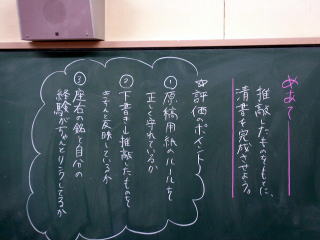 めあて
推敲したものをもとに、
清書を完成させよう。
☆評価のポイント
① 原稿用紙のルールを
正しく守れているか
② 下書きし推敲したものを
きちんと反映しているか
③ 座右の銘と自分の
経験がちゃんとリンクしてるか